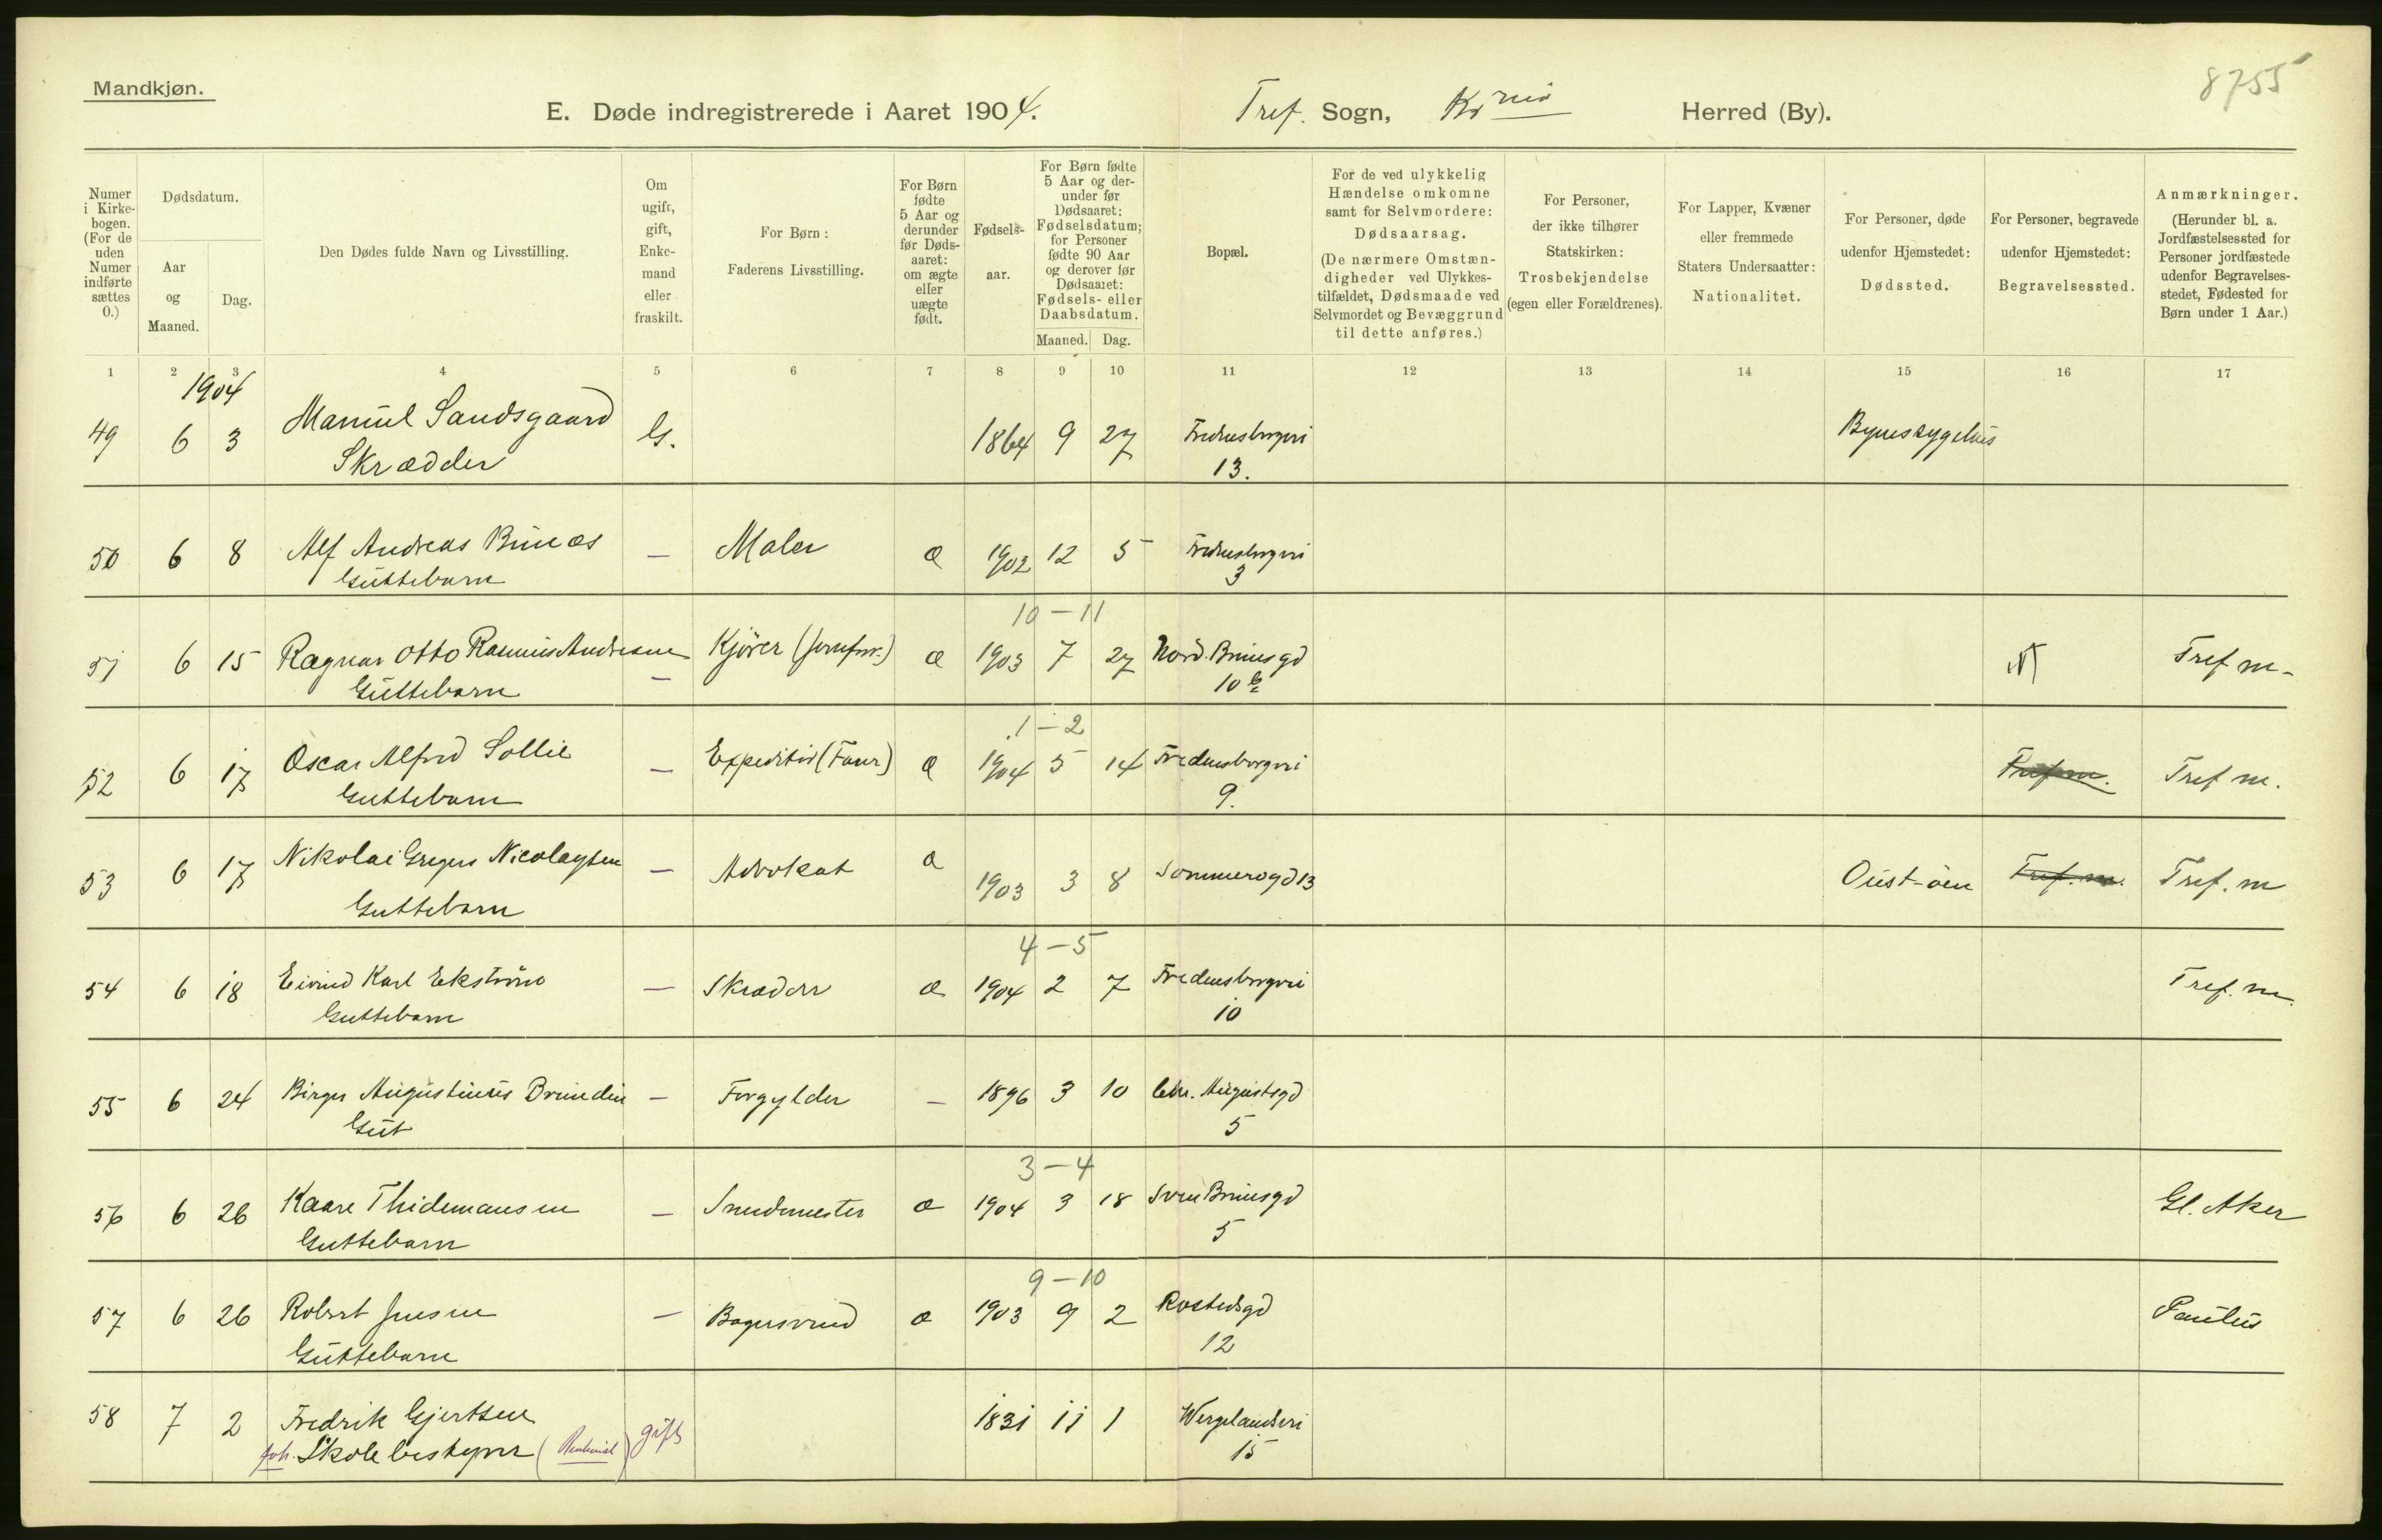 Mandkjøn.
8755
E. Døde indregistrerede i Aaret 1904. Tref. Sogn, Kr Herred (By).
Numer i Kirkebogen. (For de uden Numer indførte sættes 0.)
Dødsdatum.
Aar og Maaned.
Dag.
Den Dødes fulde Navn og Livsstilling.
Om ugift, gift, Enkemand eller fraskilt.
For Børn: Faderens Livsstilling.
For Børn fødte 5 Aar og derunder før Dødsaaret: om ægte eller uægte født.
Fødselsaar.
For Børn fødte 5 Aar og derunder før Dødsaaret: Fødselsdatum; for Personer fødte 90 Aar og derover før Dødsaaret: Fødsels- eller Daabsdatum.
Maaned. Dag.
Bopæl.
For de ved ulykkelig Hændelse omkomne samt for Selvmordere: Dødsaarsag. (De nærmere Omstændigheder ved Ulykkestilfældet, Dødsmaade ved Selvmordet og Bevæggrund til dette anføres.)
For Personer, der ikke tilhører Statskirken: Trosbekjendelse (egen eller Forældrenes).
For Lapper, Kvæner eller fremmede Staters Undersaatter: Nationalitet.
For Personer, døde udenfor Hjemstedet: Dødssted.
For Personer, begravede udenfor Hjemstedet: Begravelsessted.
Anmærkninger. (Herunder bl. a. Jordfæstelsessted for Personer jordfæstede udenfor Begravelsesstedet, Fødested for Børn under 1 Aar.)
1 2 3 4 5 6 7 8 9 10 11 12 13 14 15 16 17
1904
49 6 3 Manuel Sandsgaard G. 1864 9 27 Fredensborgvei Byens sygehus
Skrædder 13.
50 6 8 Alf Andreas Bruaas — Maler æ 1902 12 5 Fredensborgvei
Guttebarn 3
10 — 11
51 6 15 Ragnar Otto Rasmus Andresen — Kjører æ 1903 7 27 Nord. Brunsgd Tref m.
Guttebarn 10 b
1 — 2
52 6 17 Oscar Alfred Sollie — Expeditør æ 1904 5 14 Fredensborgvei Tref m. Tref m.
Guttebarn 9.
53 6 17 Nikolai Gregers Nicolaysen — Advokat æ 1903 3 8 Sommerogd 13 Oust-øen Tref. m. Tref. m
Guttebarn
4 — 5
54 6 18 Eivind Karl Ekstrøm — Skrædder æ 1904 2 7 Fredensborgvei Tref. m.
Guttebarn 10
55 6 24 Birger Augustinus Brundin — Forgylder — 1896 3 10 Chr. Augustsgd
Gut 5
3 — 4
56 6 26 Kaare Thidemansen — Smedmester æ 1904 3 18 Sven Brunsgd Gl. Aker
Guttebarn 5
9 — 10
57 6 26 Robert Jensen — Bagersvend æ 1903 9 2 Rostedsgd Paulus
Guttebarn 12
58 7 2 Fredrik Gjertsen gift 1831 11 1 Wergelandsvei
foh. Skolebestyrer 15